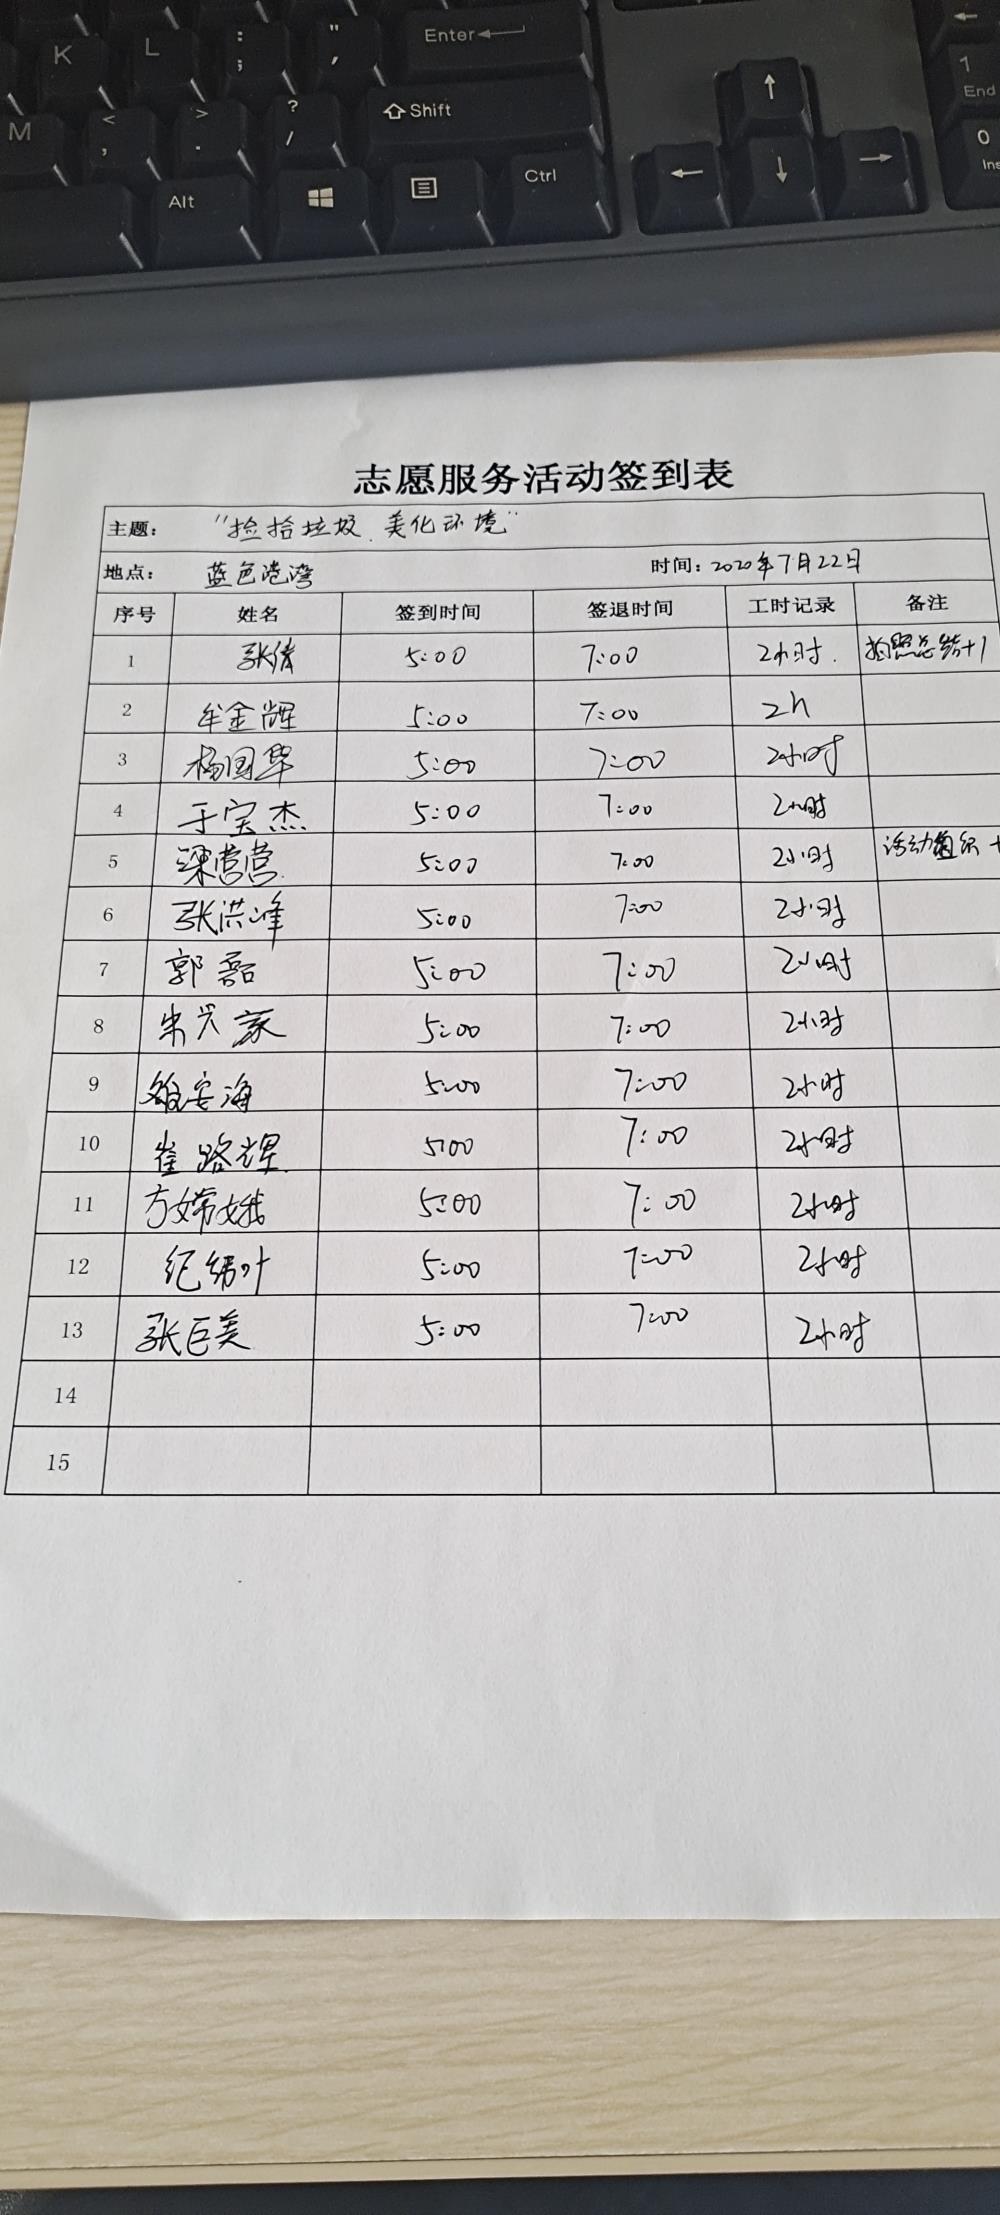 K L : ; " ' Enter
M < , > . ? / Shift 1 End
Alt Ctrl 0 Ins
志愿服务活动签到表
主题： “捡拾垃圾、美化环境”
地点： 蓝色港湾 时间：2020年7月22日
序号 姓名 签到时间 签退时间 工时记录 备注
1 张倩 5:00 7:00 2小时. 拍照总结+1
2 牟金辉 5:00 7:00 2h
3 杨国华 5:00 7:00 2小时
4 于宝杰 5:00 7:00 2小时
5 梁营营 5:00 7:00 2小时 活动组织+
6 张洪峰 5:00 7:00 2小时
7 郭磊 5:00 7:00 2小时
8 朱兴家 5:00 7:00 2小时
9 5:00 7:00 2小时
10 崔路辉 5:00 7:00 2小时
11 方嫦娥 5:00 7:00 2小时
12 纪绣叶 5:00 7:00 2小时
13 张巨美 5:00 7:00 2小时
14
15